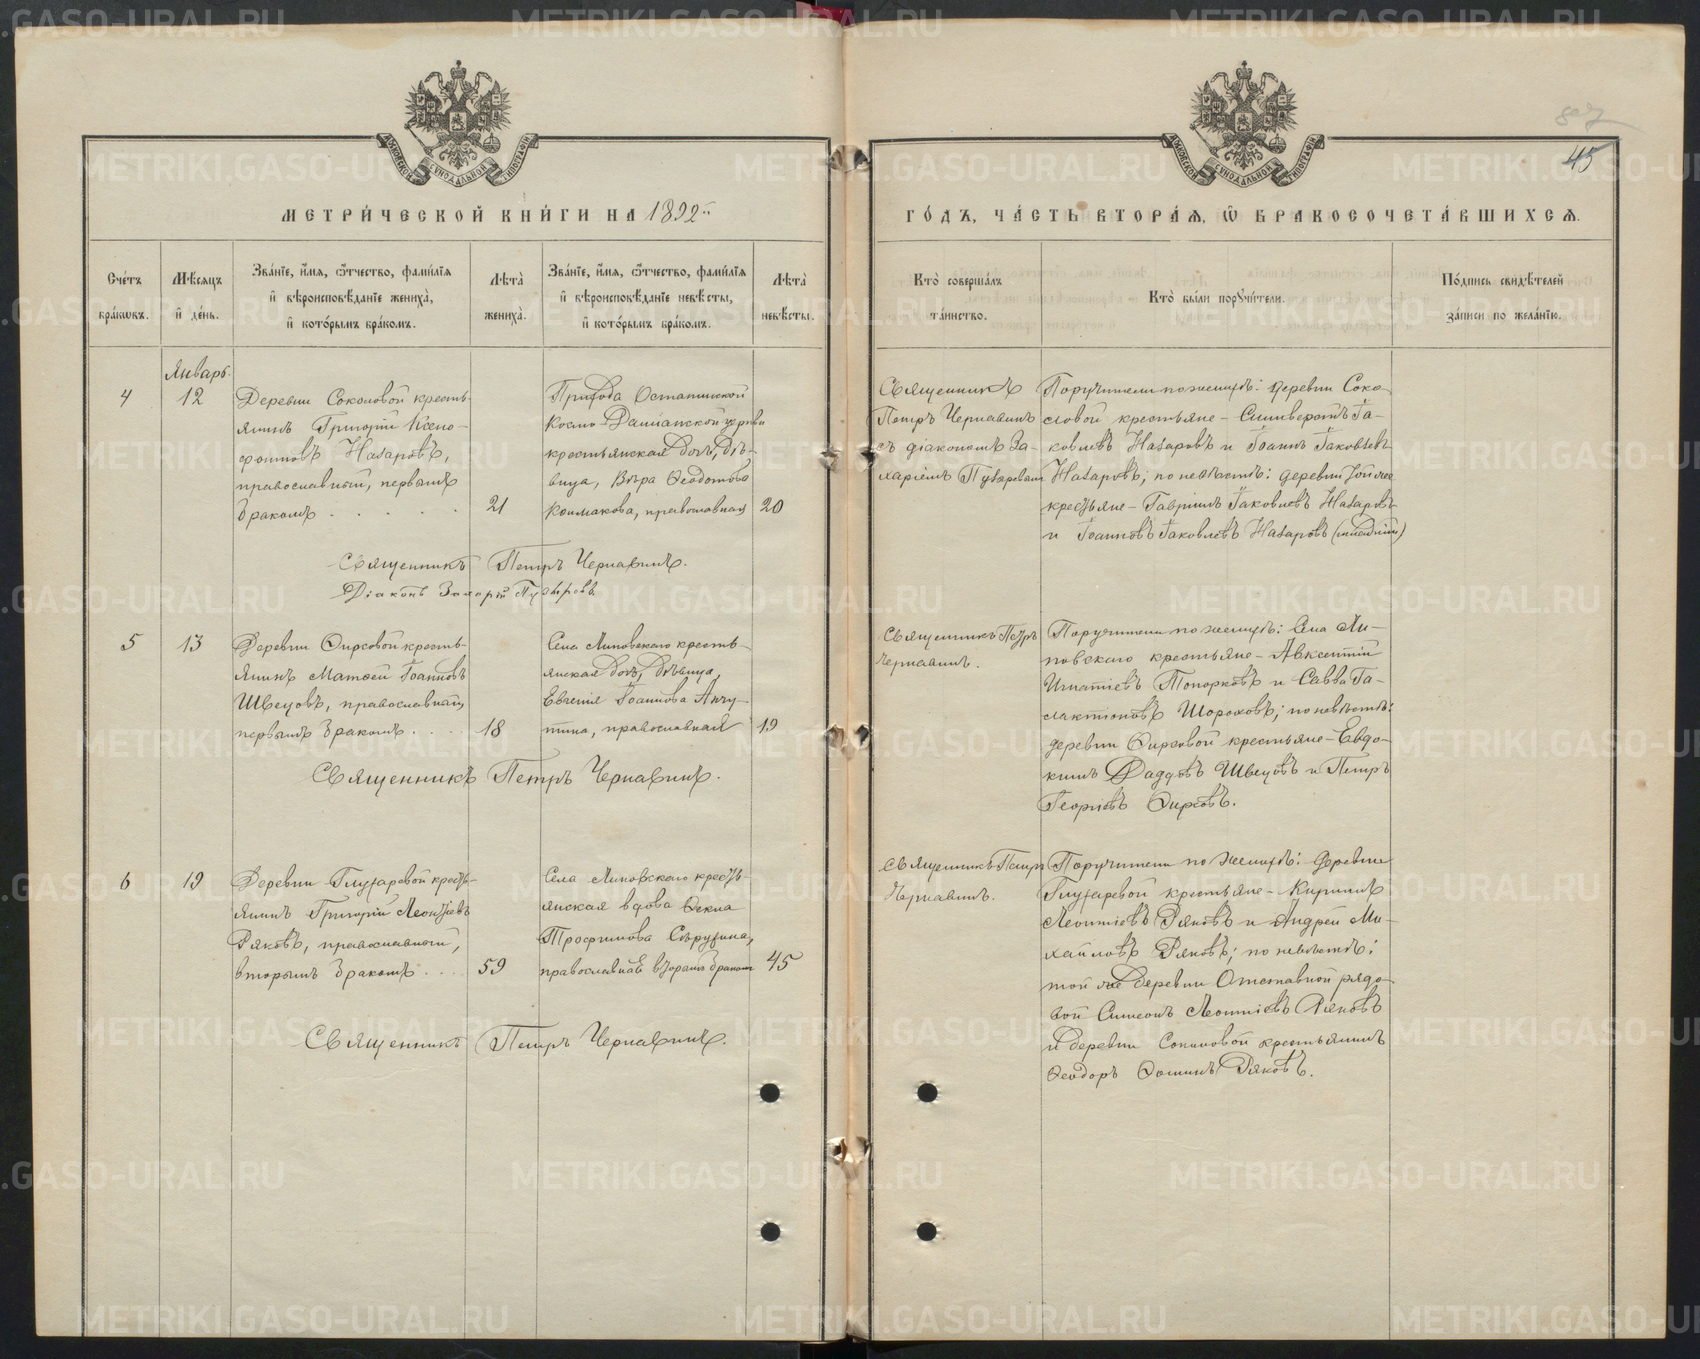 МЕТРИ́ЧЕСКОЙ КНИ́ГИ НА 1892й
ГО́ДЪ, ЧА́СТЬ ВТОРА́Ѧ, Ѽ БРАКОСОЧЕТА́ВШИХСѦ.
45
Сче́тъ бра́кѡвъ.
Мѣ́сяцъ и҆ де́нь.
Зва́нїе, и҆́мя, ѻ҆́тчество, фами́лїя и҆ вѣроисповѣ́данїе жениха̀, и҆ кото́рымъ бра́комъ.
Лѣта̀ жениха̀.
Зва́нїе, и҆́мя, ѻ҆́тчество, фами́лїя и҆ вѣроисповѣ́данїе невѣ́сты, и҆ кото́рымъ бра́комъ.
Лѣта̀ невѣ́сты.
Кто̀ соверша́лъ та́инство.
Кто̀ бы́ли порꙋчи́тели.
По́дпись свидѣ́телей за́писи по жела́нїю.
Январь
4
12
Деревни Соколовой кресть-
янинъ Григорій Ксено-
фонтовъ Назаровъ,
православный, первымъ
бракомъ . . . . .
21
Прихода Останинской
Космо-Даміанской церкви
крестьянская дочь, дѣ-
вица, Вѣра Ѳеодотова
Колмакова, православная
20
Священникъ
Петръ Чернавинъ
съ діакономъ За-
харіемъ Пузыревымъ
Поручители по женихѣ: деревни Соко-
ловой крестьяне - Силиверстъ Іа-
ковлевъ Назаровъ и Іоаннъ Іаковлевъ
Назаровъ; по невѣстѣ: деревни той же
крестьяне - Гавріилъ Іаковлевъ Назаровъ
и Іоанновъ Іаковлевъ Назаровъ (младшій)
Священникъ Петръ Чернавинъ.
Діаконъ Захарій Пузыревъ
5
13
Деревни Фирсовой кресть-
янинъ Матѳей Іоанновъ
Швецовъ, православный
первымъ бракомъ . . . .
18
Села Липовскаго кресть-
янская дочь, дѣвица,
Евгенія Іоаннова Анчу-
тина, православная
19
Священникъ Петръ
Чернавинъ.
Поручители по женихѣ: Села Ли-
повскаго крестьяне - Авксентій
Игнатіевъ Топорковъ и Савва Га-
лактіоновъ Шороховъ; по невѣстѣ:
деревни Фирсовой крестьяне - Евдо-
кимъ Швецовъ и Петръ
Георгіевъ Фирсовъ.
Священникъ Петръ Чернавинъ.
6
19
Деревни Глухаревой кресть-
янинъ Григорій Леонтьевъ
Ряковъ, православный,
вторымъ бракомъ . . . .
59
Села Липовскаго кресть-
янская вдова Ѳекла
Трофимова
православная вторымъ бракомъ
45
Священникъ Петръ
Чернавинъ.
Поручители по женихѣ: деревни
Глухаревой крестьяне - Кириллъ
Леонтіевъ Ряковъ и Андрей Ми-
хайловъ Ряковъ; по невѣстѣ:
той же деревни Отставной рядо-
вой Симеонъ Леонтіевъ Ряковъ
и деревни Соколовой крестьянинъ
Ѳеодоръ Ѳоминъ Ряковъ.
Священникъ Петръ Чернавинъ.
METRIKI.GASO-URAL.RU